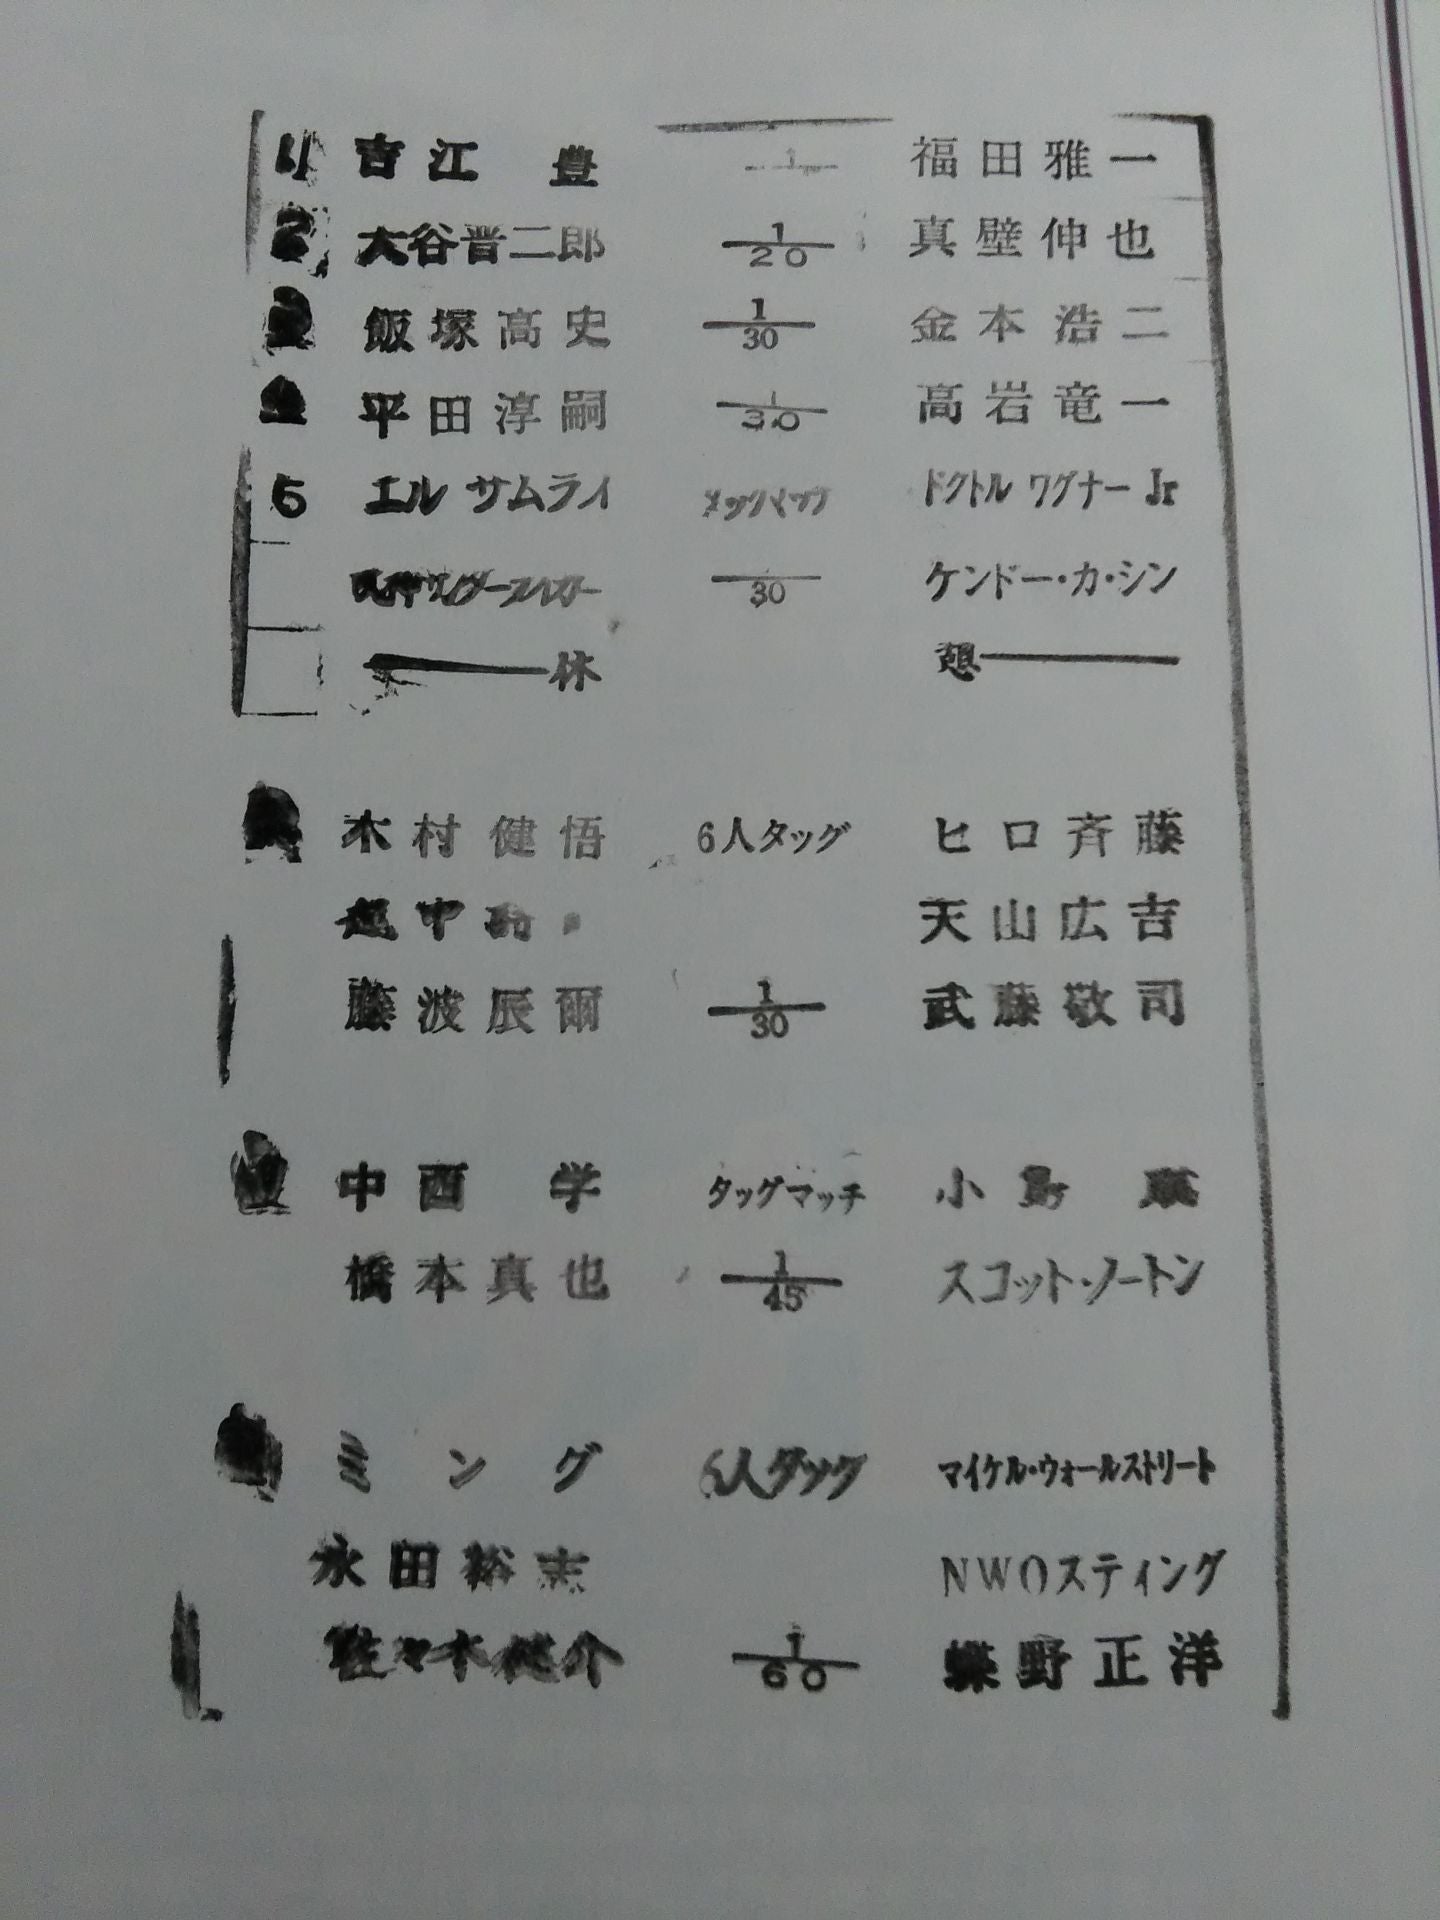 1 吉江 豊 1 福田雅一
2 大谷晋二郎 1/20 真壁伸也
飯塚高史 1/30 金本浩二
平田淳嗣 1/30 高岩竜一
5 エル サムライ ドクトル ワグナー Jr
サンダーライガー 30 ケンドー・カ・シン
休 憩
木村健悟 6人タッグ ヒロ斉藤
越中 天山広吉
藤波辰爾 1/30 武藤敬司
中西 学 タッグマッチ 小島 聡
橋本真也 1/45 スコット・ノートン
ミング 6人タッグ マイケル・ウォールストリート
永田裕志 NWOスティング
佐々木健介 1/60 蝶野正洋